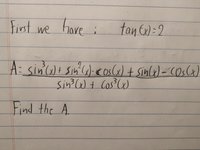 First we have : tan(x)=2
A = sin³(x) + sin²(x)·cos(x) + sin(x) - cos(x)
sin³(x) + cos³(x)
Find the A.